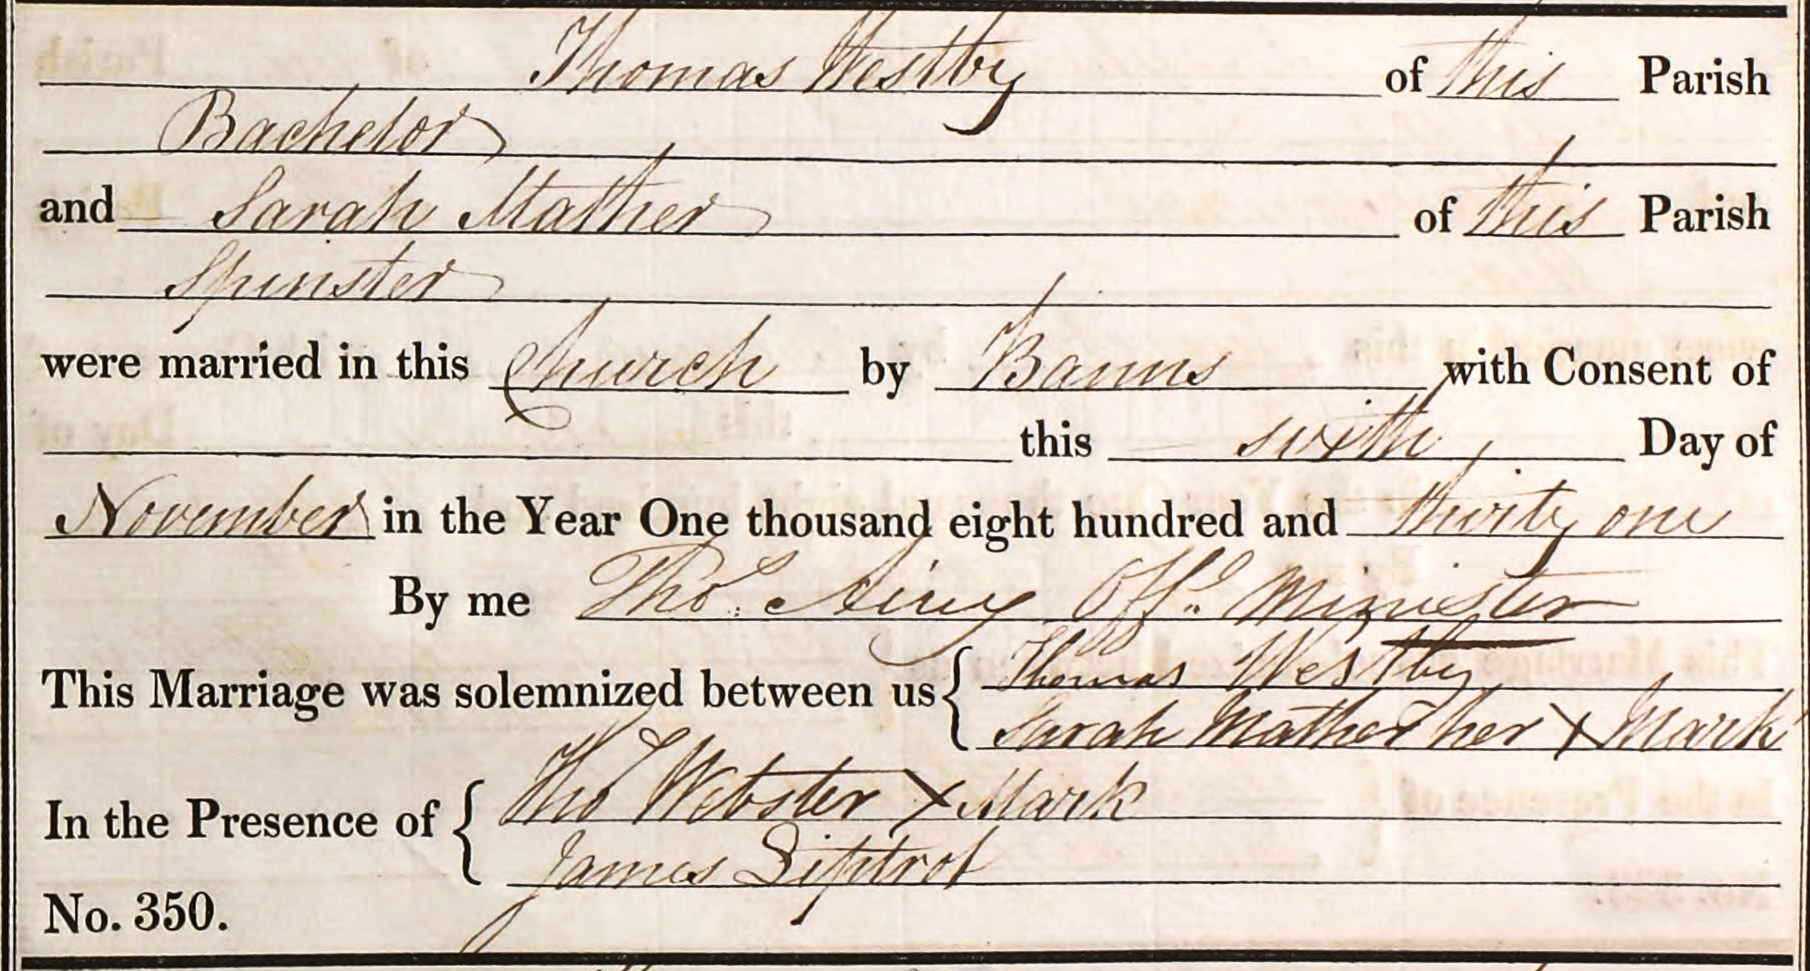 Thomas Westby of this Parish
Bachelor
and Sarah Mather of this Parish
Spinster
were married in this Church by Banns with Consent of
this sixth Day of
November in the Year One thousand eight hundred and thirty one
By me Tho.s Airey Off.g Minister
This Marriage was solemnized between us { Thomas Westby
Sarah Mather her X Mark
In the Presence of { Tho Webster X Mark
James Liptrot
No. 350.